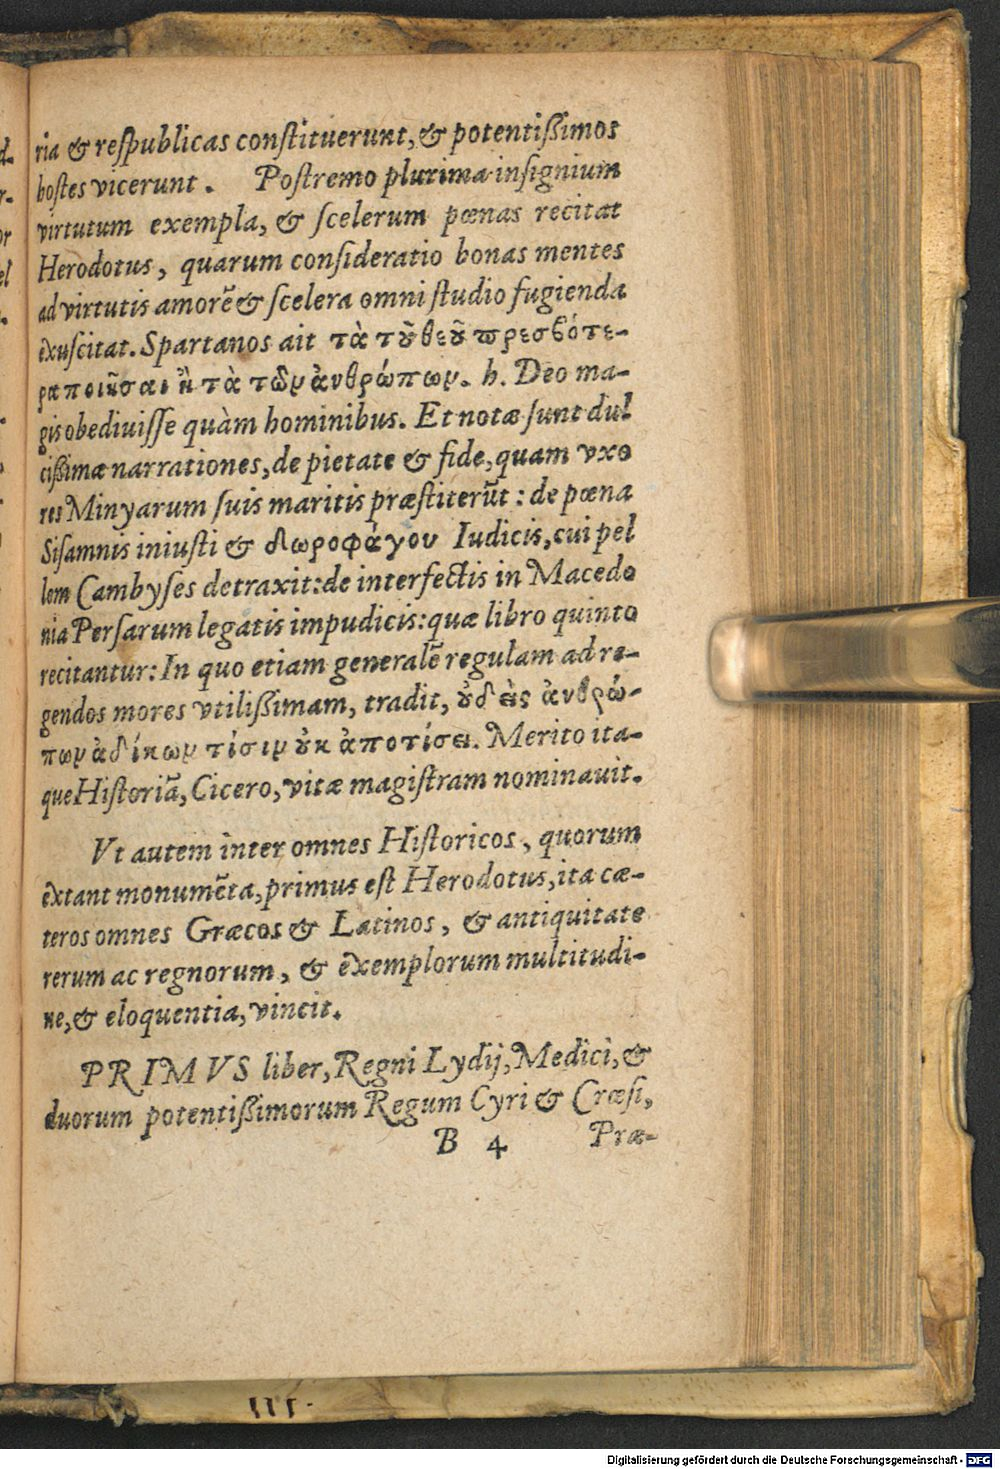 ria & reſpublicas conſtituerunt, & potentiſsimos
hoſtes vicerunt. Poſtremo plurima inſignium
virtutum exempla, & ſcelerum pœnas recitat
Herodotus, quarum conſideratio bonas mentes
ad virtutis amorē & ſcelera omni ſtudio fugienda
exuſcitat. Spartanos ait τὰ τοῦ θεοῦ πρεσβύτε-
ρα ποιῆσαι ἢ τὰ τῶν ἀνθρώπων. h. Deo ma-
gis obediuiſſe quàm hominibus. Et notæ ſunt dul
ciſsimæ narrationes, de pietate & fide, quam vxo
res Minyarum ſuis maritis præſtiterūt: de pœna
Siſamnis iniuſti & δωροφάγου Iudicis, cui pel
lem Cambyſes detraxit: de interfectis in Macedo
nia Perſarum legatis impudicis: quæ libro quinto
recitantur: In quo etiam generalē regulam ad re-
gendos mores vtiliſsimam, tradit, οὐδεὶς ἀνθρώ-
πων ἀδίκων τίσιν οὐκ ἀποτίσει. Merito ita-
que Hiſtoriā, Cicero, vitæ magiſtram nominauit.
Vt autem inter omnes Hiſtoricos, quorum
extant monumēta, primus eſt Herodotus, ita cæ-
teros omnes Græcos & Latinos, & antiquitate
rerum ac regnorum, & exemplorum multitudi-
ne, & eloquentia, vincit.
PRIMVS liber, Regni Lydij, Medici, &
duorum potentiſsimorum Regum Cyri & Crœſi,
B 4 Præ-
Digitalisierung gefördert durch die Deutsche Forschungsgemeinschaft - DFG